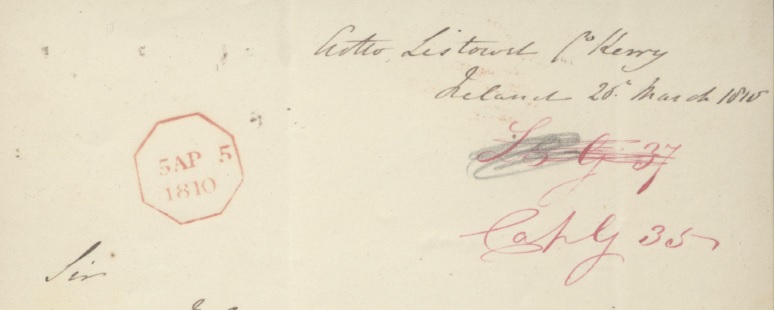 Listowel Co Kerry
Ireland 28 March 1810
5AP 5
1810
G 37
Cap G 35
Sir